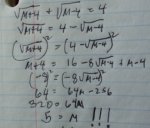 √m+4 + √m-4 = 4
√m+4 = 4 - √m-4
(√m+4)² = (4-√m-4)²
m+4 = 16 - 8√m-4 + m-4
(-8)² = (-8√m-4)²
64 = 64m - 256
320 = 64m
5 = m !!!